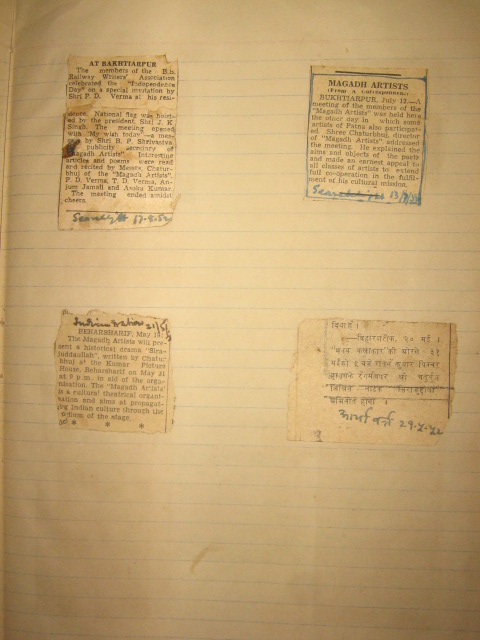 AT BAKHTIARPUR
The members of the
Railway Writers' Association
celebrated the "Independence
Day" on a special invitation by
Shri P. D. Verma at his resi-
dence. National flag was hoist-
ed by the president, Shri J. K.
Singh. The meeting opened
with 'My wish today'—a mes-
by Shri B. P. Shrivastva,
publicity secretary of
"Magadh Artists". Interesting
articles and poems were read
and recited by Messrs. Chatur-
bhuj of the "Magadh Artists",
P. D. Verma, T. D. Verma, An-
jum Jamali and Asoka Kumar.
The meeting ended amidst
cheers.
Searchlight
MAGADH ARTISTS
(From a Correspondent)
BUKHTIARPUR, July 12.—A
meeting of the members of the
"Magadh Artists" was held here
the other day in which some
artists of Patna also participat-
ed. Shree Chaturbhuj, director
of "Magadh Artists" addressed
the meeting. He explained the
aims and objects of the party
and made an earnest appeal to
all classes of artists to extend
full co-operation in the fulfil-
ment of his cultural mission.
Searchlight
Indian Nation
BEHARSHARIF, May
The Magadh Artists will pre-
sent a historical drama "Sira-
juddaullah", written by Chatur-
bhuj at the Kumar Picture
House, Beharsharif on May 31
at 9 p.m. in aid of the orga-
nisation. The "Magadh Artists"
is a cultural theatrical organi-
sation and aims at propagat-
ing Indian culture through the
medium of the stage.
* * *
बिहारशरीफ, २० मई ।
"मगध कलाकार" की ओरसे ३१
मईको ९ बजे रातमें कुमार पिक्चर
श्री चतुर्भुज
लिखित नाटक "सिराजुद्दौला"
अभिनीत होगा ।
आर्यावर्त 29-5-52